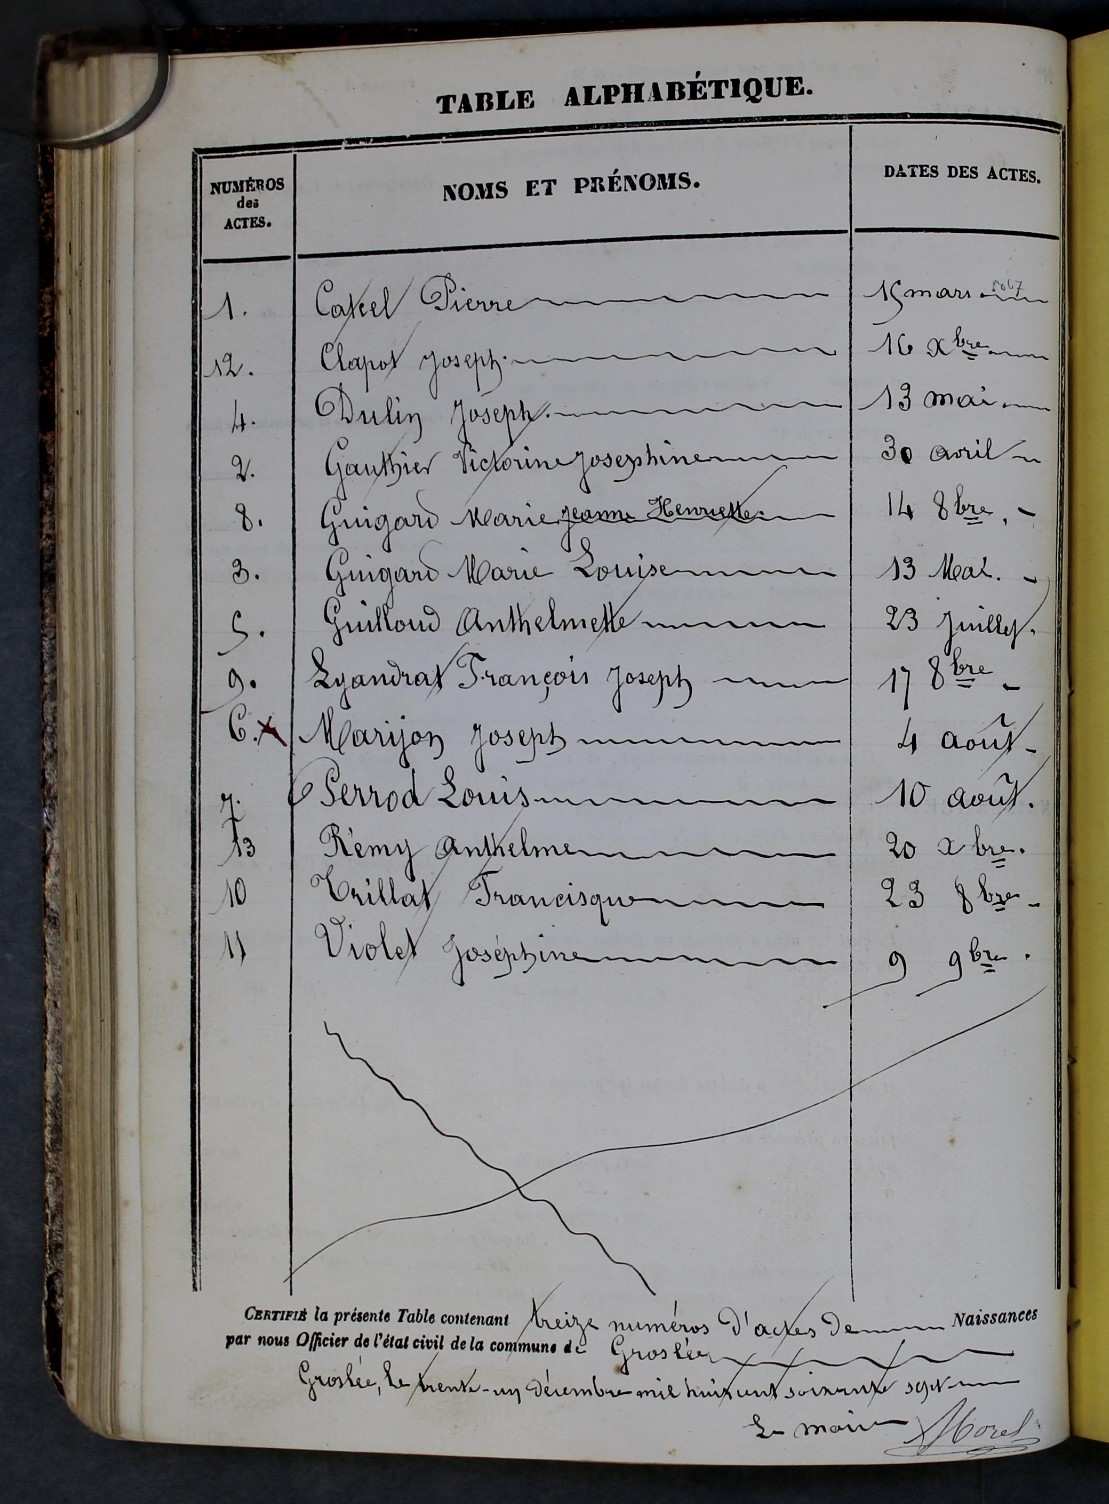 TABLE ALPHABÉTIQUE.
NUMÉROS des ACTES. NOMS ET PRÉNOMS. DATES DES ACTES.
1. Catcel Pierre 15 mars
12. Clapot Joseph. 16 Xbre
4. Dulin Joseph. 13 mai
2. Gauthier Victorine Josephine 30 avril
8. Guigard Marie Jeanne Henriette. 14 8bre.
3. Guigard Marie Louise 13 Mai.
5. Guilloud Anthelmette 23 Juillet.
9. Lyandrat François Joseph 17 8bre
6. x Marijon Joseph 4 août
7. Perrod Louis 10 août.
13 Rémy Anthelme 20 Xbre.
10 Trillat Francisque 23 8bre
11 Violet Joséphine 9 9bre.
CERTIFIÉ la présente Table contenant treize numéros d'actes de Naissances
par nous Officier de l'état civil de la commune de Groslée
Groslée, le trente-un décembre mil huit cent soixante sept
Le maire Morel